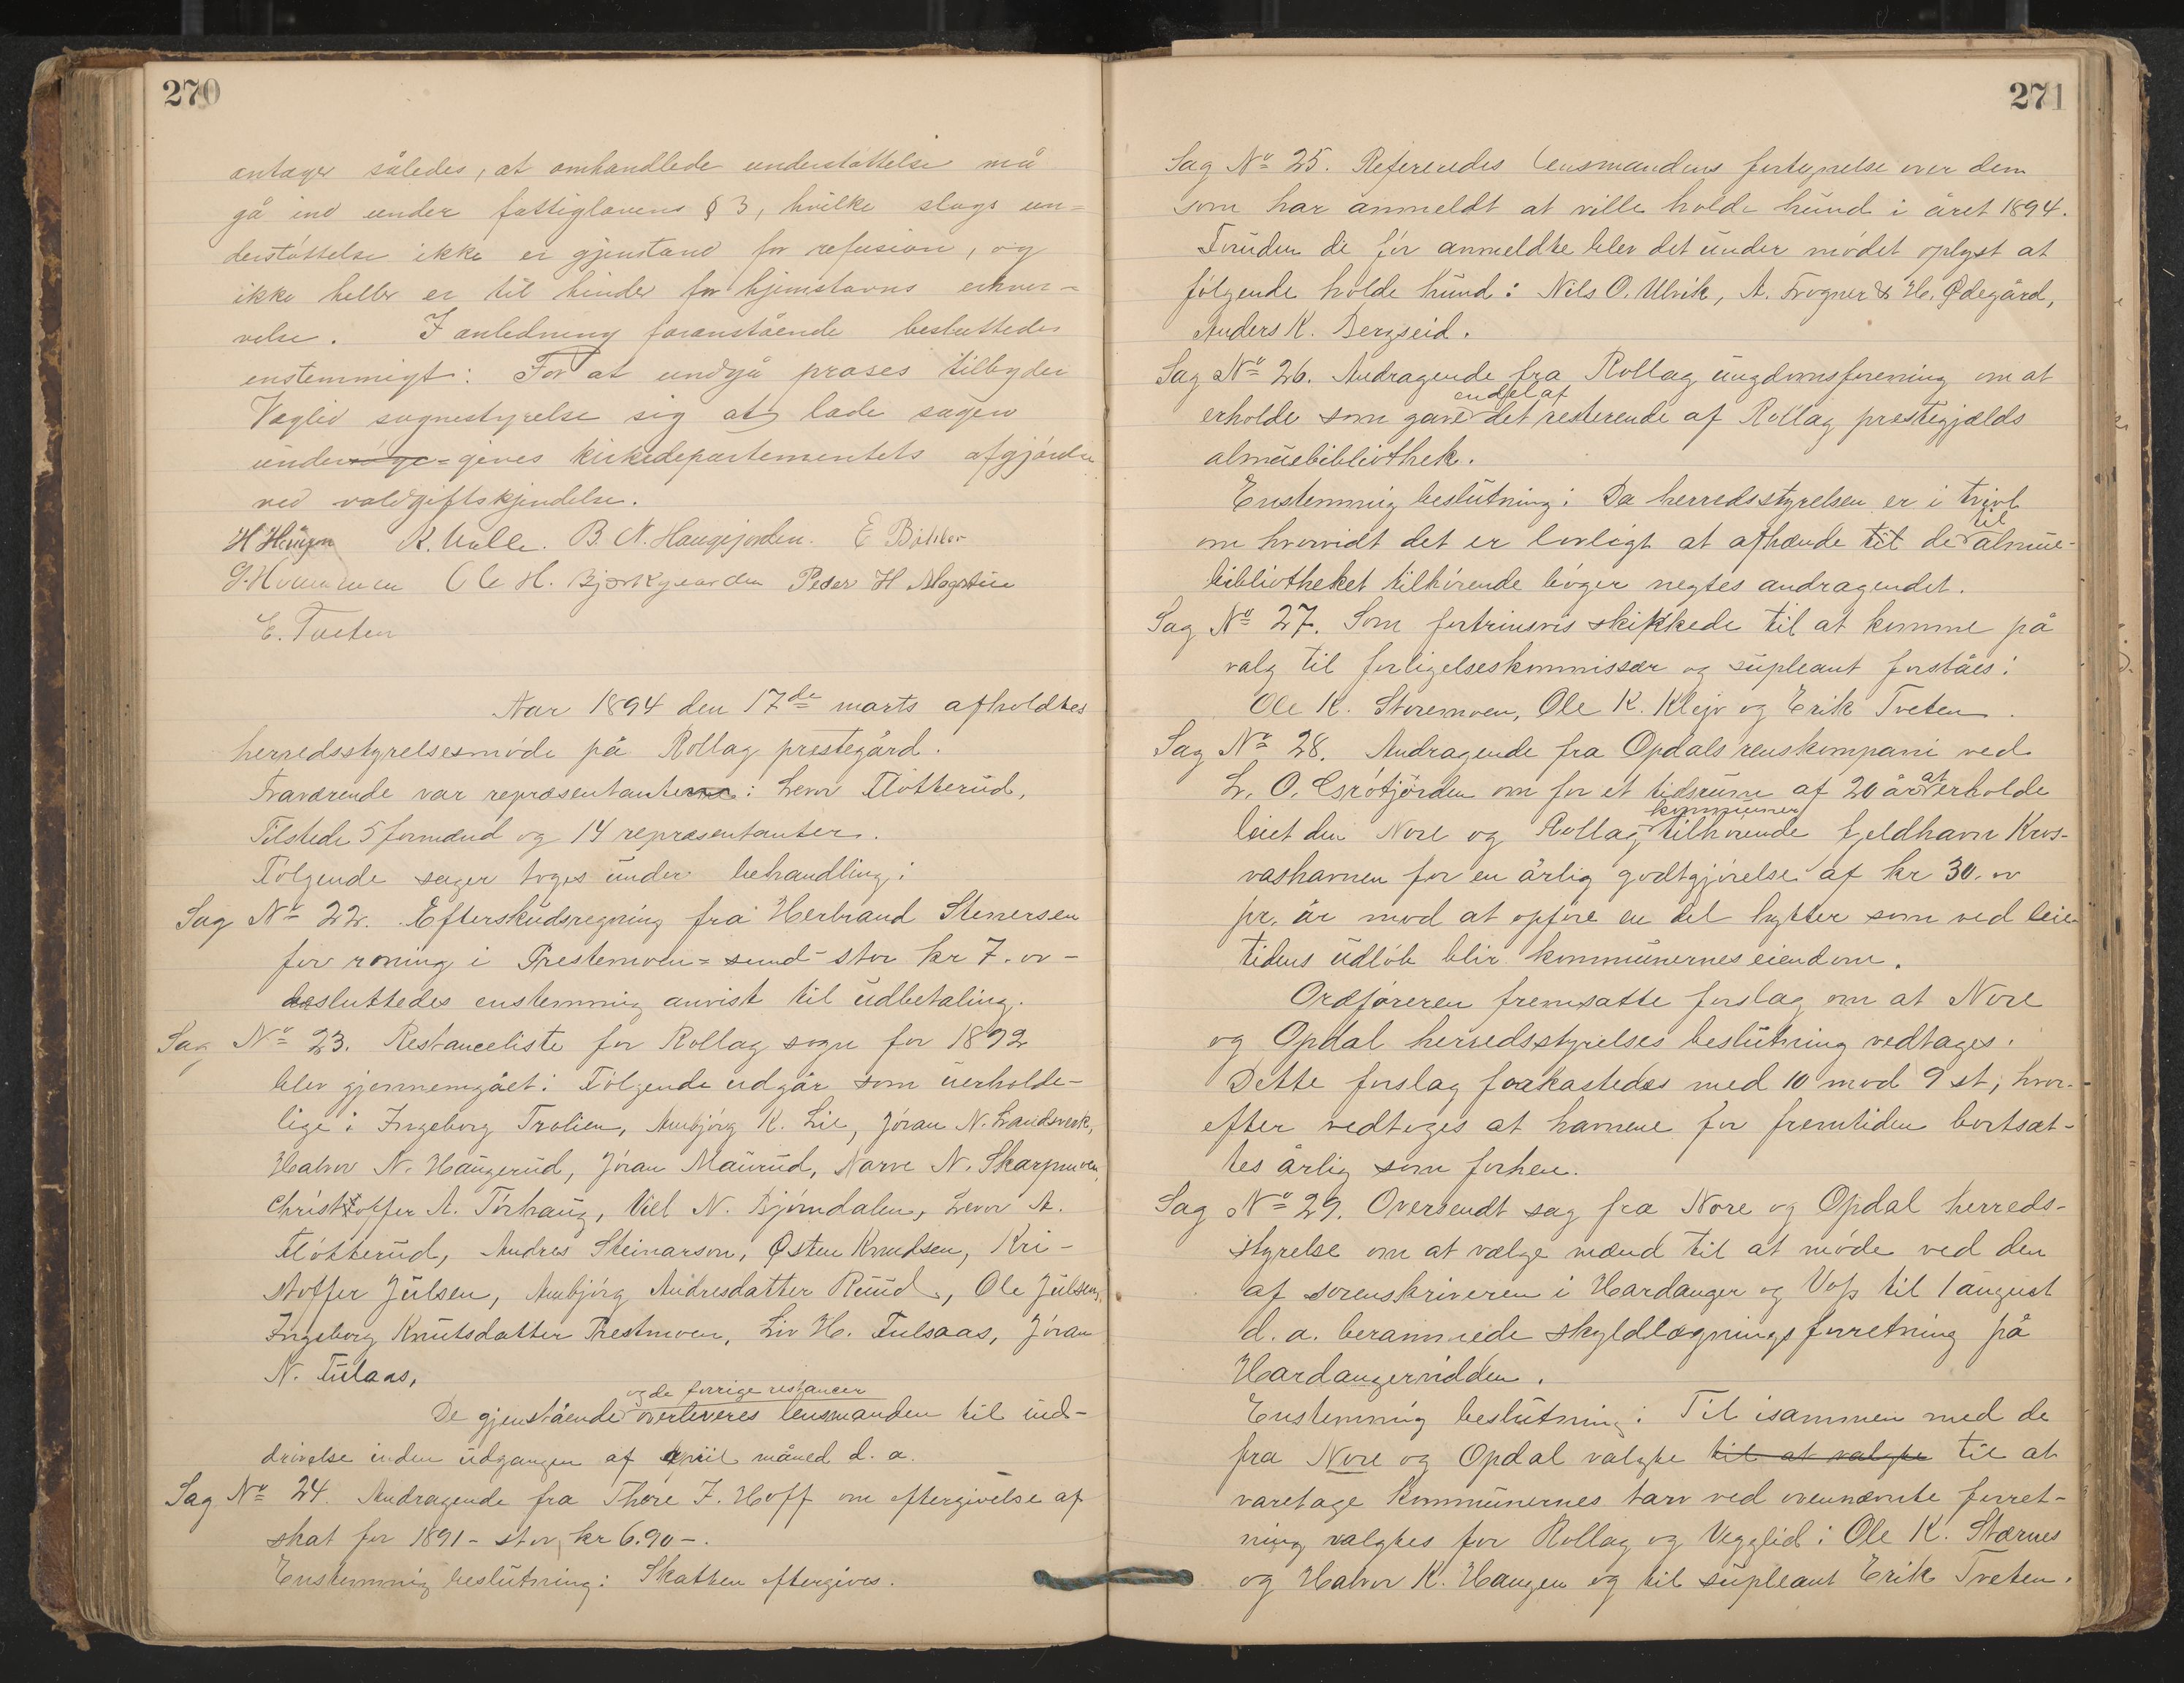 270
antager således, at omhandlede understøttelse må
gå ind under fattiglovens § 3, hvilke slags un=
derstøttelse ikke er gjenstand for refusion, og
ikke heller er til hinder for hjemstavns erhver-
velse. I anledning foranstående besluttedes
enstemmigt: For at undgå proses tilbyder
Veglid sognestyrelse sig at lade sagen
undersøge-gives kirkedepartementets afgjørelse
ved voldgiftskjendelse.
H Haugen K. Ualle. B. N. Haugejorden. E Bakker
Ole H. Bjørkgaarden Peder H
E. Tveten
Aar 1894 den 17de marts afholdtes
herredsstyrelsesmøde på Rollag prestegård.
Fraværende var repræsentanterne: Levor Fløtterud,
Tilstede 5 formænd og 14 repræsentanter.
Følgende sager toges under behandling:
Sag No 22. Efterskudsregning fra Herbrand Stenersen
for roning i Prestemoen=sund- stor kr 7.oo-
besluttedes enstemmig anvist til udbetaling.
Sag No 23. Restanceliste for Rollag sogn for 1892
blev gjennemgået: Følgende udgår som uerholde-
lige: Ingeborg Trolien, Ambjørg K. Lie, Jøran N. Landsverk,
Halvor N. Haugerud, Jøran Maurud, Narve N. Skarpmoen,
Christoffer A. Tørhaug, Viel N. Bjørndalen, Levor A.
Fløtterud, Andres Steinarson, Østen Knudsen, Kri-
stoffer Julsen, Ambjørg Andresdatter Ruud, Ole Julsen,
Ingeborg Knutsdatter Prestmoen, Liv H. Fulsaas, Jøran
N. Fulaas,
og de forrige restancer
De gjenstående overleveres lensmanden til ind-
drivelse inden udgangen af april måned d. a.
Sag No 24. Andragende fra Thore J. Hoff om eftergivelse af
skat for 1891- stor kr 6.90-.
Enstemmig beslutning: Skatten eftergives.
271
Sag No 25. Refereredes lensmandens fortegnelse over dem
som har anmeldt at ville holde hund i året 1894.
Foruden de før anmeldte blev det under mødet oplyst at
følgende holde hund: Nils O. Ulvik, A. Frogner & H. Ødegård,
Anders K. Bergseid.
Sag No 26. Andragende fra Rollag ungdomsforening om at
endel af
erholde som gave det resterende af Rollag prestegjælds
almuebibliothek.
Enstemmig beslutning: Da herredsstyrelsen er i tvivl
til
om hvorvidt det er lovligt at afhænde til de almue-
bibliotheket tilhørende bøger negtes andragendet.
Sag No 27. Som fortrinsvis skikkede til at komme på
valg til forligelseskommissær og supleant foreslåes:
Ole K. Storemoen, Ole K. Klejv og Erik Tveten.
Sag No 28. Andragende fra Opdals renskompani ved
L. O. Grøtjørden om for et tidsrum af 20 år at erholde
kommuner
leiet den Nore og Rollag tilhørende fjeldhavn Kros-
vashavnen for en årlig godtgjørelse af kr 30.oo
pr. år mod at opføre en del hytter som ved leie
tidens udløb blir kommunernes eiendom.
Ordføreren fremsatte forslag om at Nore
og Opdal herredsstyrelses beslutning vedtages.
Dette forslag forkastedes med 10 mod 9 st, hvor-
efter vedtoges at havnene for fremtiden bortsæt-
tes årlig som forhen.
Sag No 29. Oversendt sag fra Nore og Opdal herreds-
styrelse om at vælge mænd til at møde ved den
af sorenskriveren i Hardanger og Voss til 1 august
d. a. berammede skyldlægningsforretning på
Hardangervidden.
Enstemmig beslutning: Til isammen med de
fra Nore og Opdal valgte til at valgte til at
varetage kommunernes tarv ved ovennævnte forret-
ning valgtes for Rollag og Vegglid: Ole K. Stærnes
og Halvor K. Haugen og til supleant Erik Tveten.